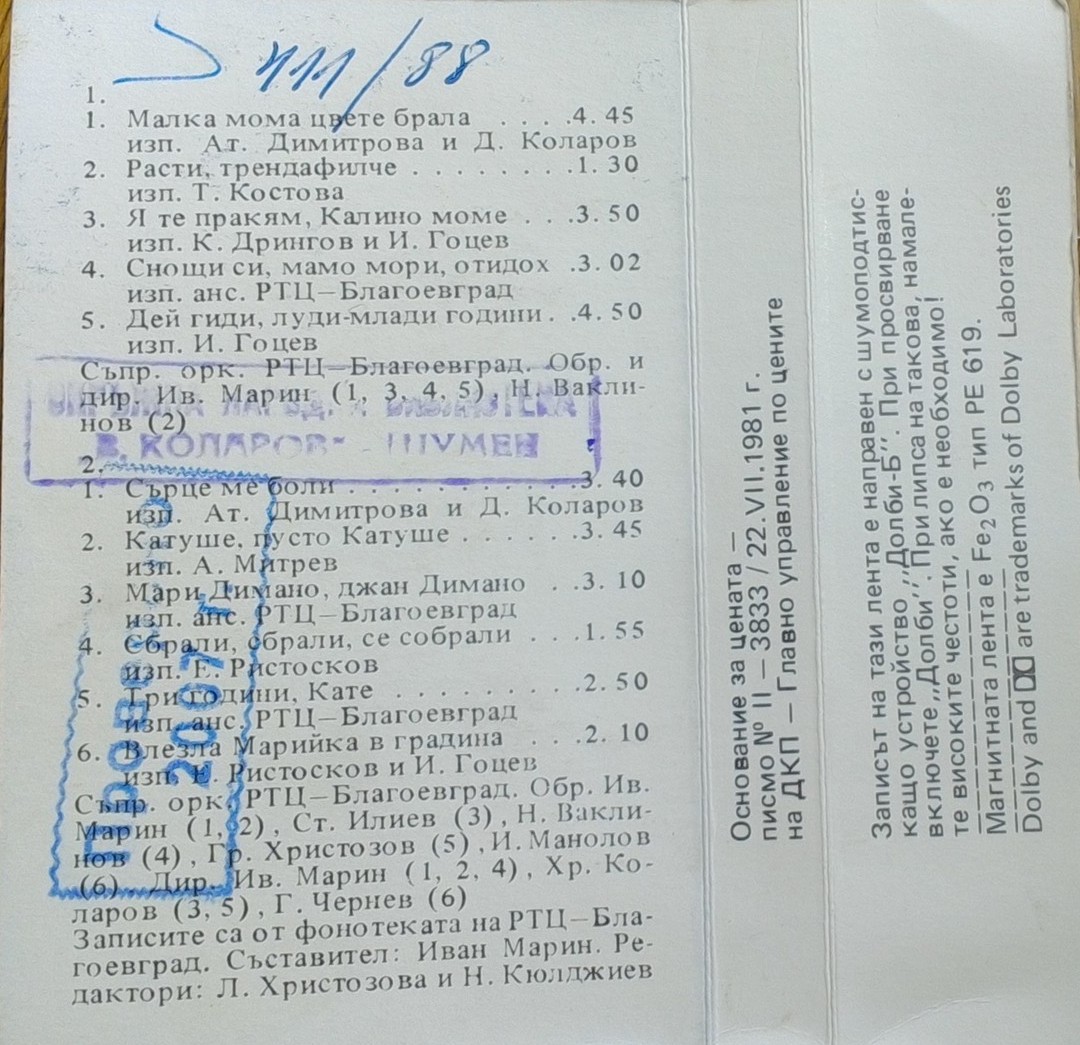 411/88
1.
1. Малка мома цвете брала . . . .4. 45
изп. Ат. Димитрова и Д. Коларов
2. Расти, трендафилче . . . . . . . .1. 30
изп. Т. Костова
3. Я те пракям, Калино моме . . .3. 50
изп. К. Дрингов и И. Гоцев
4. Снощи си, мамо мори, отидох .3. 02
изп. анс. РТЦ—Благоевград
5. Дей гиди, луди-млади години. .4. 50
изп. И. Гоцев
Съпр. орк. РТЦ—Благоевград. Обр. и
дир. Ив. Марин (1, 3, 4, 5), Н. Вакли-
нов (2)
НАРОДНА БИБЛИОТЕКА
„В. КОЛАРОВ“ - ШУМЕН
2.
1. Сърце ме боли . . . . . . . . . . .3. 40
изп. Ат. Димитрова и Д. Коларов
2. Катуше, пусто Катуше . . . . . .3. 45
изп. А. Митрев
3. Мари Димано, джан Димано . .3. 10
изп. анс. РТЦ—Благоевград
4. Сбрали, сбрали, се собрали . . .1. 55
изп. Е. Ристосков
5. Три години, Кате . . . . . . . . .2. 50
изп. анс. РТЦ—Благоевград
6. Влезла Марийка в градина . . .2. 10
изп. Е. Ристосков и И. Гоцев
Съпр. орк. РТЦ—Благоевград. Обр. Ив.
Марин (1, 2), Ст. Илиев (3), Н. Вакли-
нов (4), Гр. Христозов (5), И. Манолов
(6). Дир. Ив. Марин (1, 2, 4), Хр. Ко-
ларов (3, 5), Г. Чернев (6)
Записите са от фонотеката на РТЦ—Бла-
гоевград. Съставител: Иван Марин. Ре-
дактори: Л. Христозова и Н. Кюлджиев
ПРОВЕРЕНО
2007 г.
Основание за цената —
писмо № II — 3833 / 22.VII.1981 г.
на ДКП — Главно управление по цените
Записът на тази лента е направен с шумоподтис-
кащо устройство ,,Долби-Б''. При просвирване
включете ,,Долби''. При липса на такова, намале-
те високите честоти, ако е необходимо!
Магнитната лента е Fe2O3 тип PE 619.
Dolby and are trademarks of Dolby Laboratories